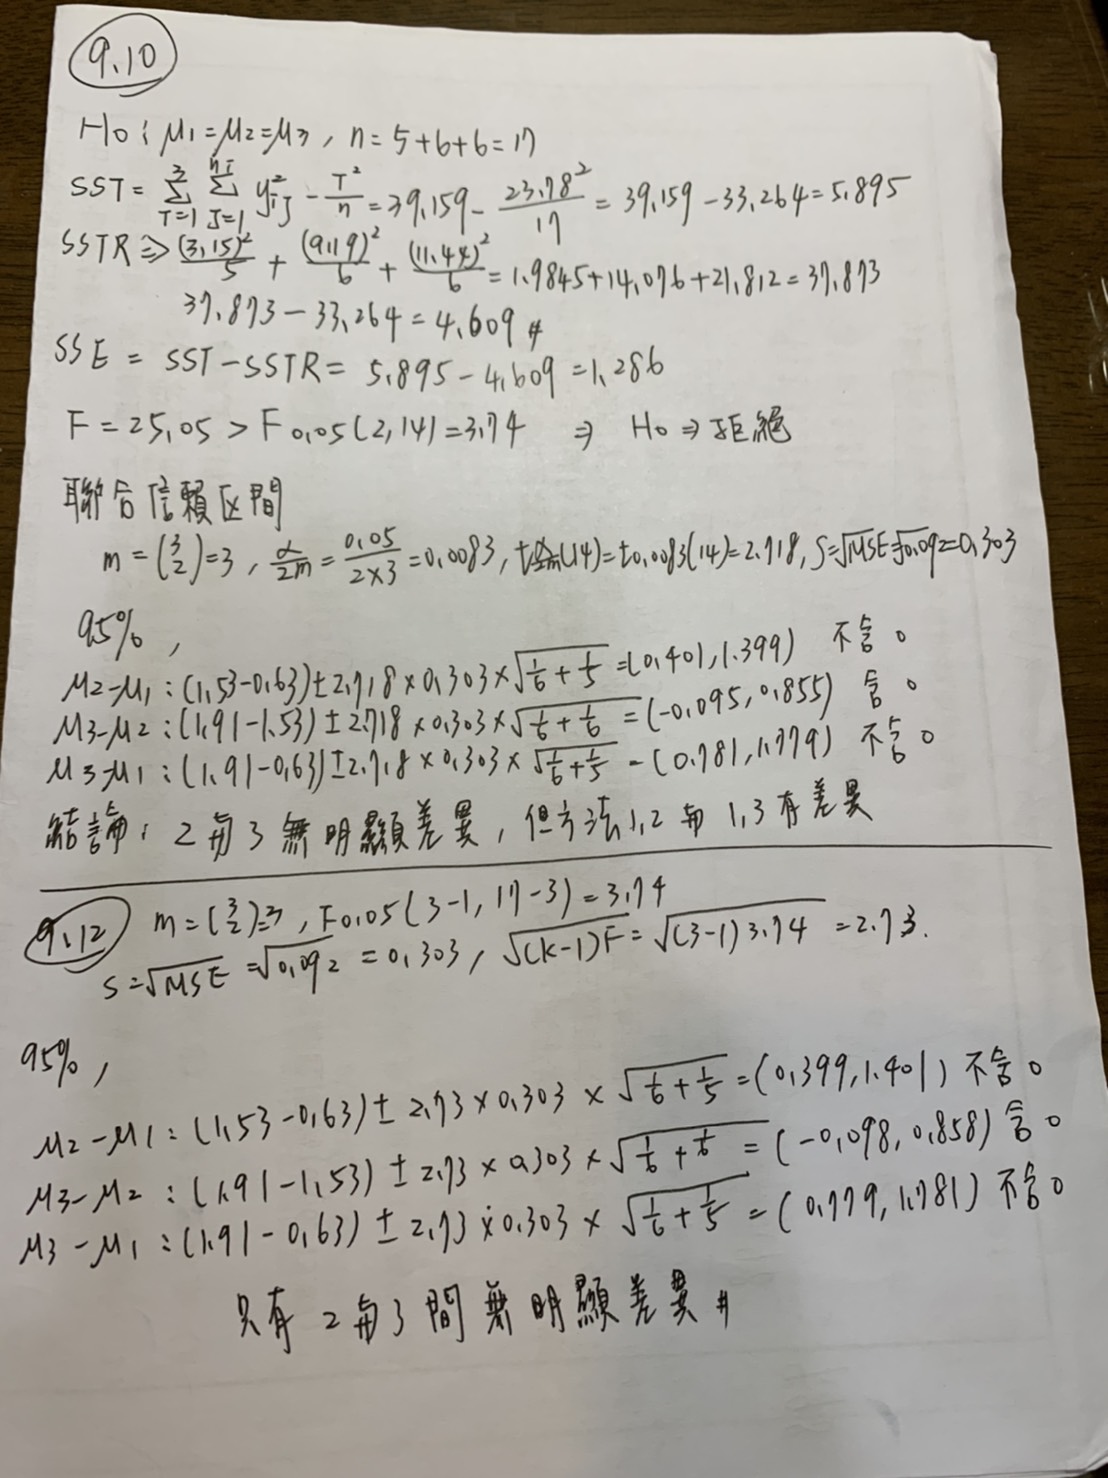 9.10
H0: μ1=μ2=μ3, n=5+6+6=17
SST= Σ(I=1→3) Σ(J=1→nI) yij² - T²/n = 39.159 - 23.78²/17 = 39.159-33.264=5.895
SSTR⇒ (3.15)²/5 + (9.19)²/6 + (11.44)²/6 = 1.9845+14.076+21.812=37.873
37.873-33.264=4.609 #
SSE = SST-SSTR= 5.895-4.609=1.286
F=25.05 > F0.05(2,14)=3.74 ⇒ H0⇒拒絕
聯合信賴区間
m=(3 2)=3, α/2m = 0.05/2×3 = 0.0083, tα/2m(14)=t0.0083(14)=2.718, S=√MSE=√0.092=0.303
95%,
μ2-μ1: (1.53-0.63)±2.718×0.303×√1/6+1/5=(0.401,1.399) 不含0
μ3-μ2: (1.91-1.53)±2.718×0.303×√1/6+1/6=(-0.095,0.855) 含0
μ3-μ1: (1.91-0.63)±2.718×0.303×√1/6+1/5=(0.781,1.779) 不含0
結論: 2與3無明顯差異, 但方法1,2與1,3有差異
9.12 m=(3 2)=3, F0.05(3-1,17-3)=3.74
S=√MSE=√0.092=0.303, √(k-1)F=√(3-1)3.74=2.73.
95%,
μ2-μ1: (1.53-0.63)±2.73×0.303×√1/6+1/5=(0.399,1.401) 不含0
μ3-μ2: (1.91-1.53)±2.73×0.303×√1/6+1/6=(-0.098,0.858) 含0
μ3-μ1: (1.91-0.63)±2.73×0.303×√1/6+1/5=(0.779,1.781) 不含0
只有2與3間無明顯差異#